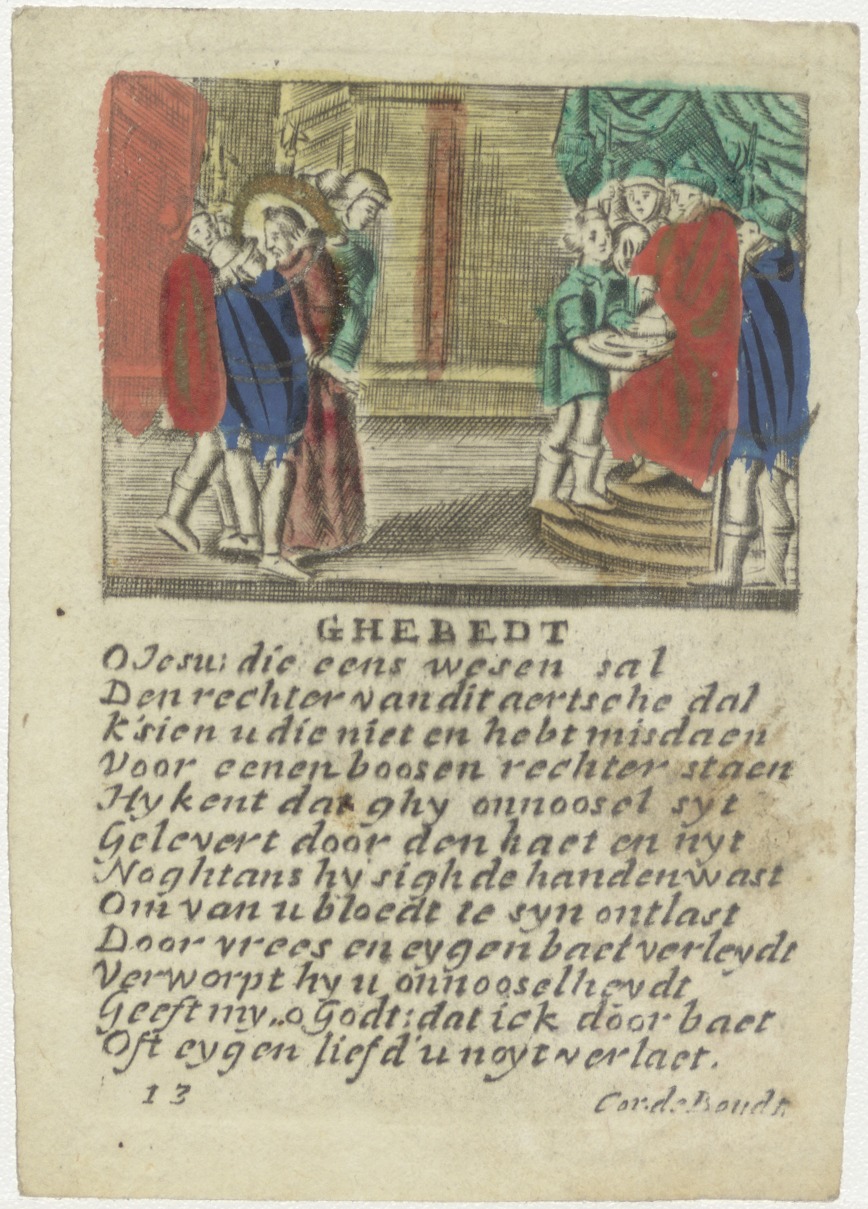 GHEBEDT
O Jesu: die eens wesen sal
Den rechter van dit aertsche dal
K'sien u die niet en hebt misdaen
Voor eenen boosen rechter staen
Hy kent dat ghy onnoosel syt
Gelevert door den haet en nyt
Noghtans hy sigh de handen wast
Om van u bloedt te syn ontlast
Door vrees en eygen baet verleydt
Verworpt hy u onnooselheydt
Geeft my..o Godt: dat ick door baet
Oft eygen liefd' u noyt verlaet.
13
Cor. de Boudt.